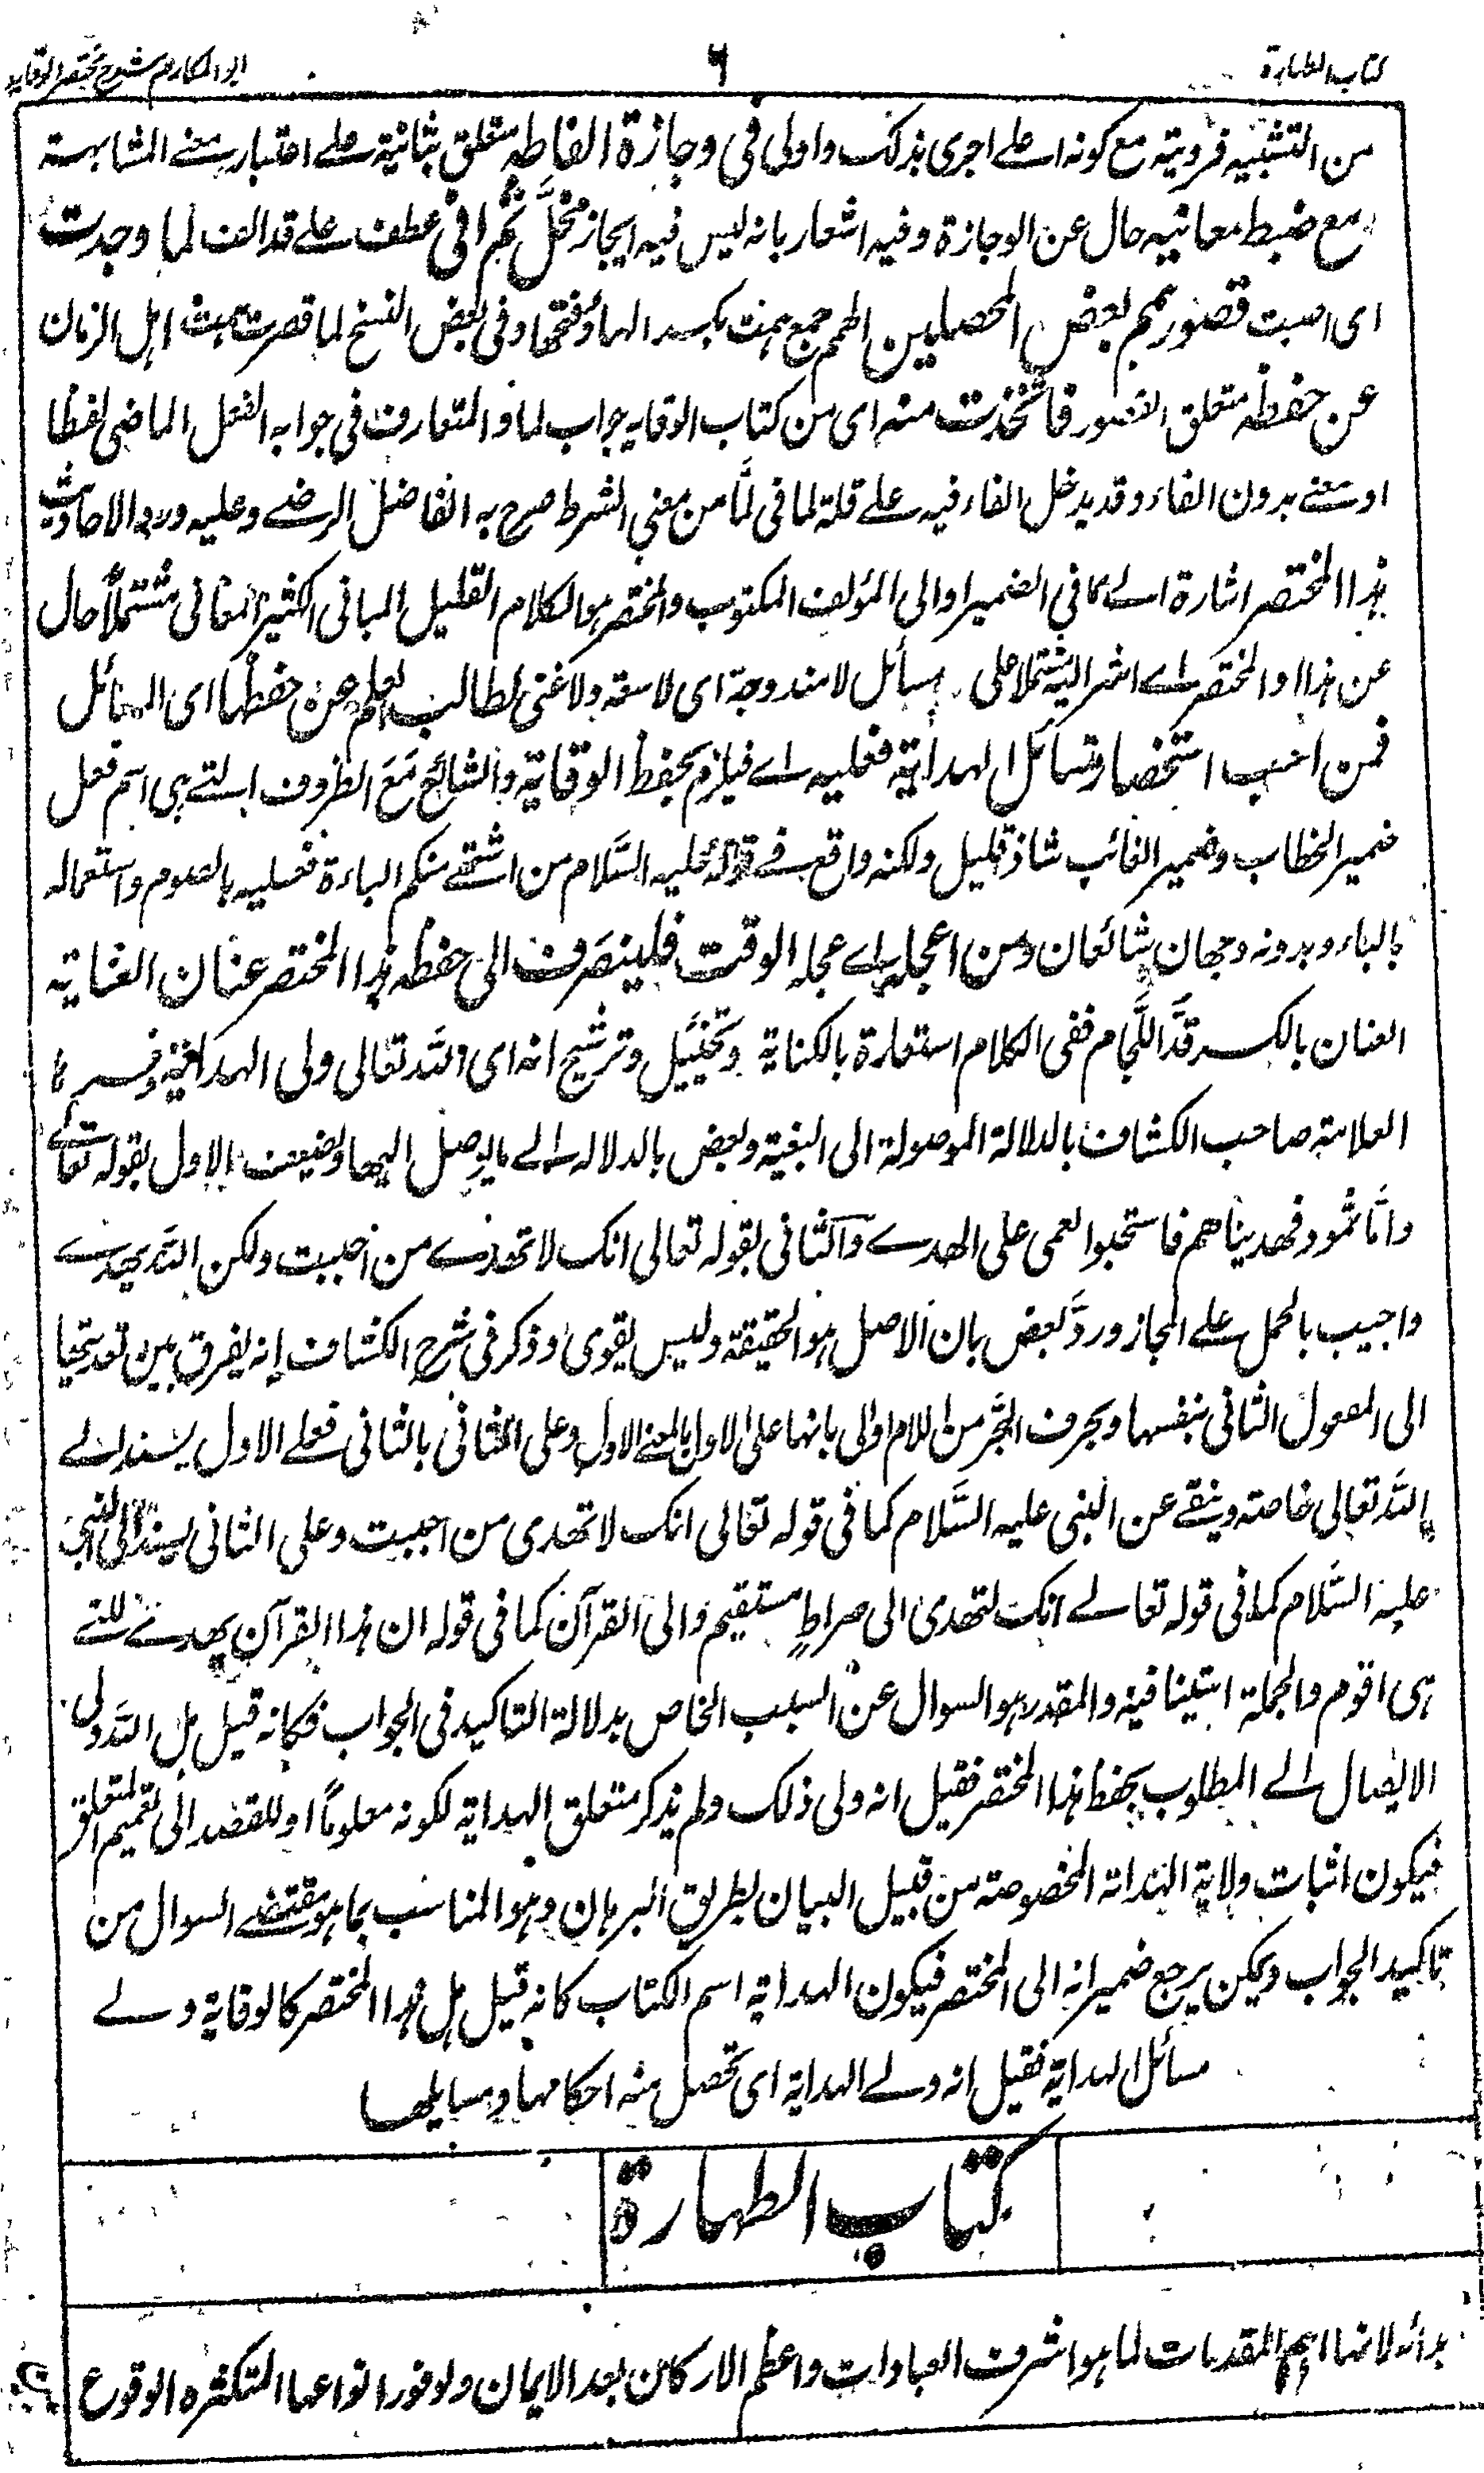 كتاب الطهارة
٦
ابو المكارم شرح مختصر الوقاية
من التشبيه فرويته مع كونه اعلى اجرى بذلك واولى فى وجازة الفاظه متعلق بثانية على اعتبار معنى المشابهة
مع ضبط معانيه حال عن الوجازة وفيه اشعار بانه ليس فيه ايجاز مخل ثم انى عطف على قد الف لما وجدت
اى اصبت قصور همم بعض المحصلين الهمم جمع همت بكسر الهاء وفتحها وفى بعض النسخ لما قصرت همت اهل الزمان
عن حفظه متعلق القصور فاتخذت منه اى من كتاب الوقايه جواب لما والمتعارف فى جوابه الفعل الماضى لفظا
او معنى بدون الفاء وقد يدخل الفاء فيه على قلة لما فى لمّا من معنى الشرط صرح به الفاضل الرضى وعليه ورد الاحاديث
هذا المختصر اشارة الى ما فى الضمير او الى المؤلف المكتوب والمختصر هو الكلام القليل المبانى الكثير المعانى مشتملا حال
عن هذا او المختصر اى اشر اليه مشتملا على مسائل لا مندوحة اى لا سعة ولا غنى لطالب العلم عن حفظها اى المسائل
فمن احب استحضار مسائل الهداية فعليه اى فيلزم بحفظ الوقاية والشائع مع الظروف التى هى اسم فعل
ضمير الخطاب وضمير الغائب شاذ قليل ولكنه واقع فى قوله عليه السّلام من اشتقى منكم الباءة فعليه بالصوم واستعماله
بالباء وبدونه وجهان شائعان ومن اعجله اى عجله الوقت فلينصرف الى حفظه هذا المختصر عنان العناية
العنان بالكسر قدّ اللّجام ففى الكلام استعارة بالكناية وتخييل وترشيح انه اى الله تعالى ولى الهداية وفسرها
العلامة صاحب الكشاف بالدلالة الموصولة الى البغية وبعض بالدلالة الى ما يوصل اليها وضيعف الاول بقوله تعالى
وامّا ثمود فهديناهم فاستحبوا العمى على الهدى والثانى بقوله تعالى انك لا تهدى من احببت ولكن الله يهدى
واجيب بالحمل على المجاز وردّ بعض بان الاصل هو الحقيقة وليس بقوى وذكر فى شرح الكشاف انه يفرق بين تعديتها
الى المفعول الثانى بنفسها وبحرف الجّر من اللام او الى بانها على الاول بالمعنى الاول وعلى الثانى بالثانى فعلى الاول يسند الى
الله تعالى خاصة وينفى عن النبى عليه السّلام كما فى قوله تعالى انك لا تهدى من احببت وعلى الثانى يسند الى النبى
عليه السّلام كما فى قوله تعالى انك لتهدى الى صراطٍ مستقيم والى القرآن كما فى قوله ان هذا القرآن يهدى للتى
هى اقوم والجملة استينافية والمقدر هو السوال عن السبب الخاص بدلالة التاكيد فى الجواب فكانه قيل هل الله ولى
الايصال الى المطلوب بحفظ هذا المختصر فقيل انه ولى ذلك ولم يذكر متعلق الهداية لكونه معلوماً او للقصد الى تعميم المتعلق
فيكون اثبات ولاية الهداية المخصوصة من قبيل البيان بطريق البرهان وهو المناسب بما هو مقتضى السوال من
تاكيد الجواب ويمكن يرجع ضمير انه الى المختصر فيكون الهداية اسم الكتاب كانه قيل هل هذا المختصر كالوقاية ولى
مسائل الهداية فقيل انه ولى الهداية اى تحصل منه احكامها ومسايلها
كتاب الطهارة
بدأ لانها اهم المقدمات لما هو اشرف العبادات واعظم الاركان بعد الايمان ولوفور انواعها المتكثره الوقوع